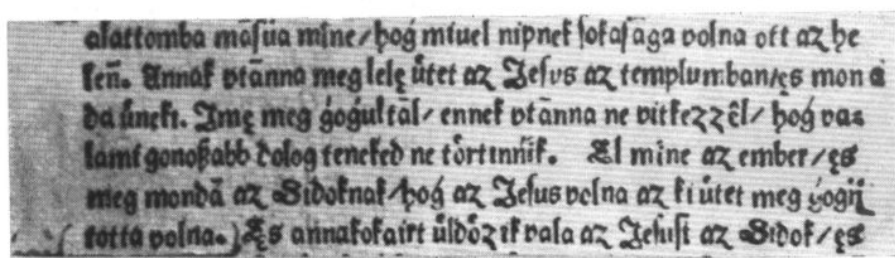 alattomba māſűa mine/ hoǵ miuel nipnek ſokaſāga volna ott az he
len̄. Annak vtānna meg lelę űtet az Jeſvs az templumban/ęs mon
da űnekı. Jmę meg ǵoǵultāl/ ennek vtānna ne vitkezzēl/ hoǵ va⸗
lamı gonoßabb dolog teneked ne tőrtınn̄ık. El mine az ember/ęs
meg mondā az Sidoknak/hoǵ az Jeſus volna az ki űtet meg ǵoǵij
totta volna. Ęs annakokaırt űldőzık vala az Jeſuſt az Sidok/ęs